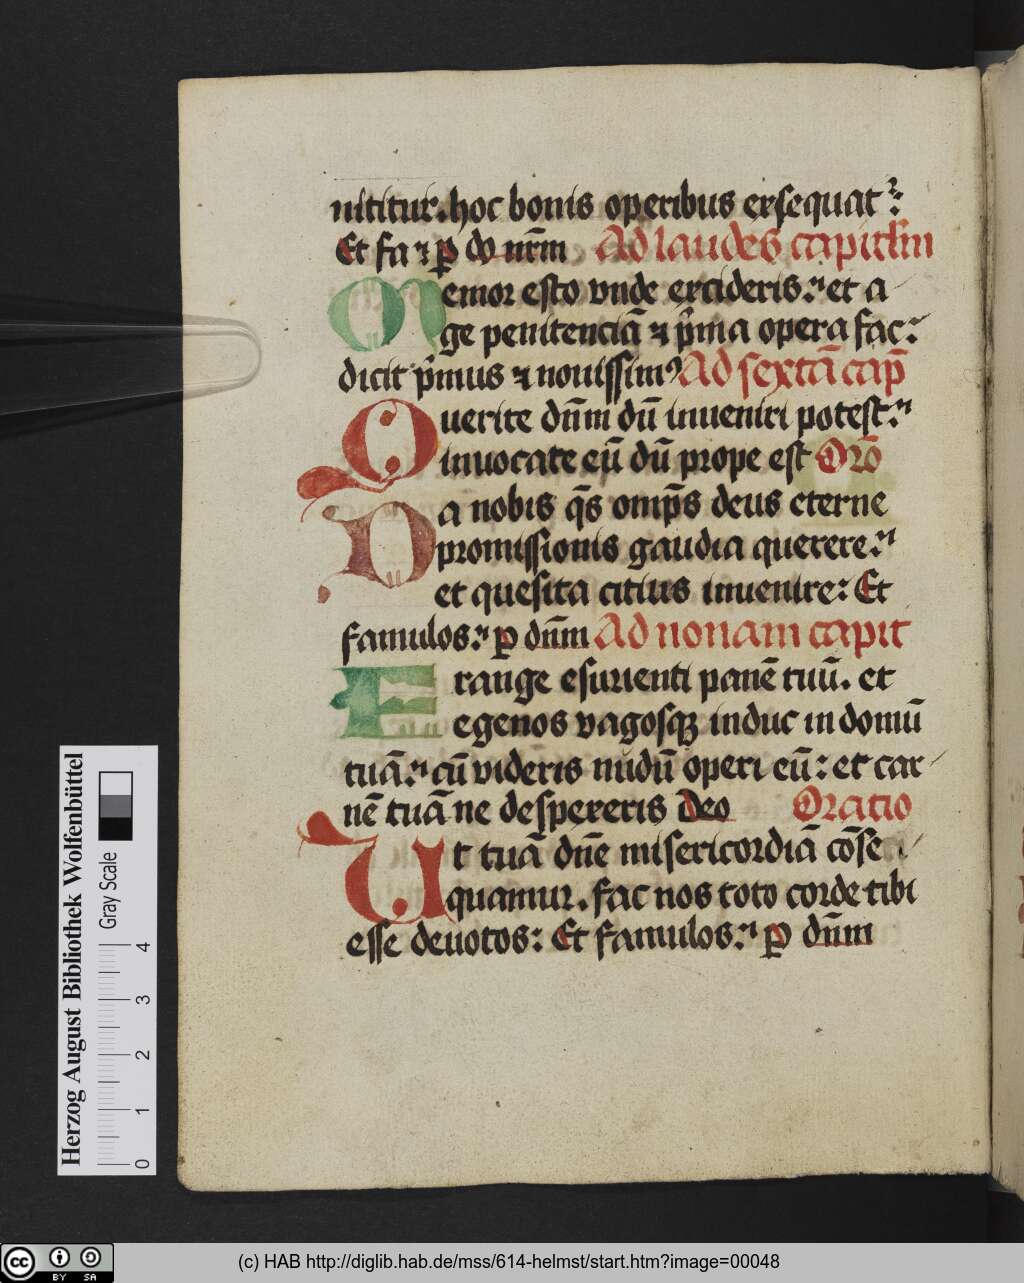 nititur. hoc bonis operibus exsequat᷑:
Et fa ⁊ ꝑ do nr̄m Ad laudes capitl̄m
Memor esto vnde excideris: et a
ge penitenciā ⁊ pͥma opera fac:
dicit pͥmus ⁊ nouissimꝰ Ad sextā cap̄
Querite dn̄m dū inueniri potest:
inuocate eū dū prope est Orō
Da nobis q̄s omp̄s deus eterne
promissionis gaudia querere:
et quesita citius inuenire: Et
famulos: ꝑ dn̄m Ad nonam capit
Frange esurienti panē tuū. et
egenos vagosqꝫ induc in domū
tuā: cū videris nudū operi eū: et car
nē tuā ne despexeris deo Oratio
Ut tuā dn̄e misericordiā cōse
quamur. fac nos toto corde tibi
esse deuotos: Et famulos: ꝑ dn̄m
Herzog August Bibliothek Wolfenbüttel
Gray Scale
0 1 2 3 4
cc BY SA
(c) HAB http://diglib.hab.de/mss/614-helmst/start.htm?image=00048